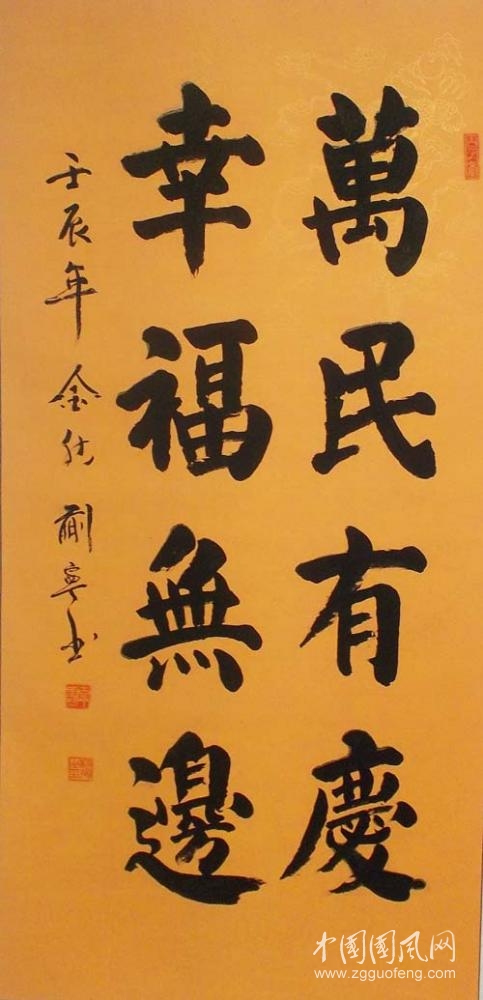 萬民有慶
幸福無邊
壬辰年 金秋 蒯寧書
中國國風网
www.zgguofeng.com